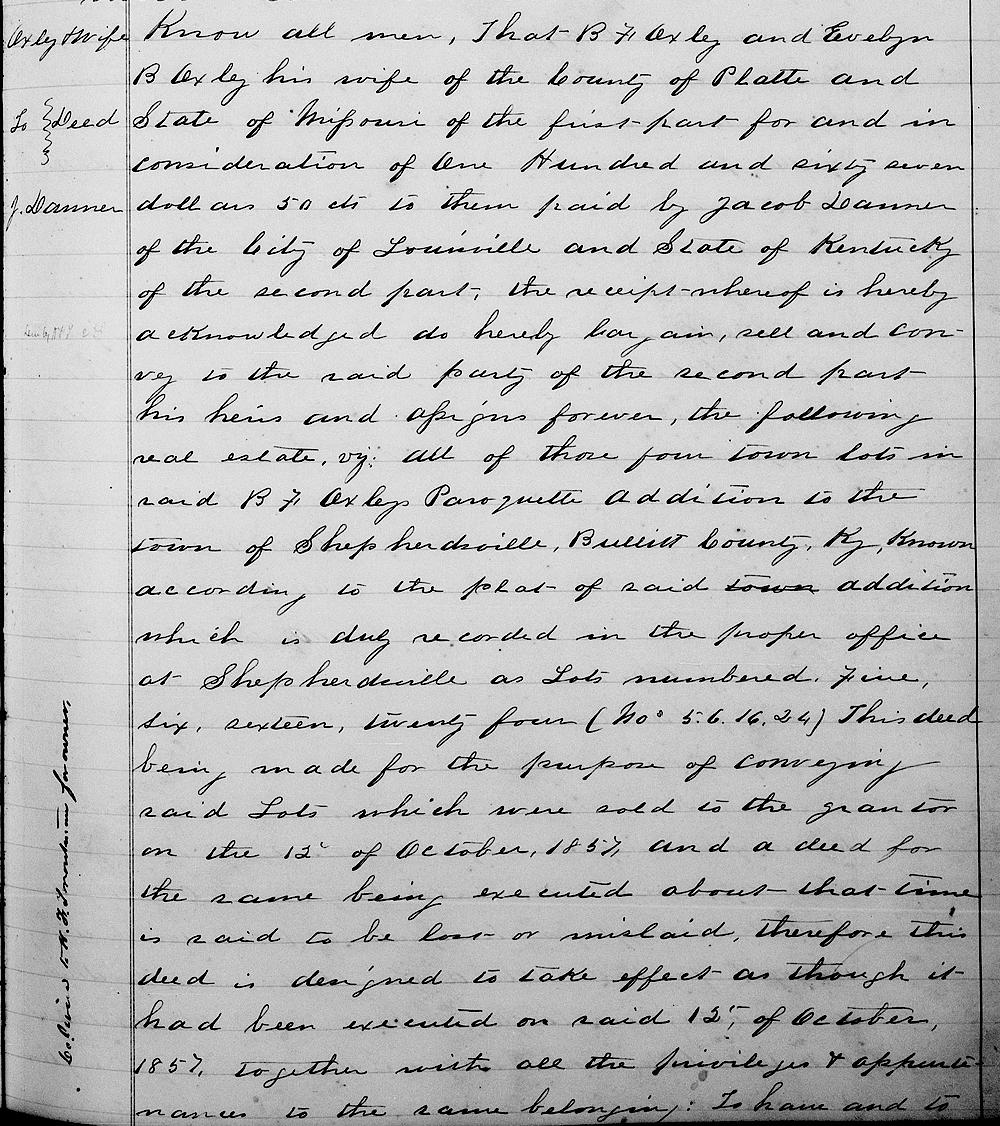 Oxley & Wife
To } Deed
J. Danner
Know all men, That B F Oxley and Evelyn
B Oxley his wife of the County of Platte and
State of Missouri of the first part for and in
consideration of One Hundred and sixty seven
dollars 50 cts to them paid by Jacob Danner
of the City of Louisville and State of Kentucky
of the second part, the receipt whereof is hereby
acknowledged do hereby bargain, sell and con-
vey to the said party of the second part
his heirs and assigns forever, the following
real estate, viz: all of those four town lots in
said B F Oxleys Paroquette addition to the
town of Shepherdsville, Bullitt County, Ky, Known
according to the plat of said town addition
which is duly recorded in the proper office
at Shepherdsville as Lots numbered. Five,
six, sexteen, twenty four (Nos 5.6.16.24) This deed
being made for the purpose of conveying
said Lots which were sold to the grantor
on the 12 of October, 1857, and a deed for
the same being executed about that time
is said to be lost or mislaid, therefore this
deed is designed to take effect as though it
had been executed on said 12, of October,
1857, together with all the privileges & appurte-
nances to the same belonging: To have and to
to for owner,